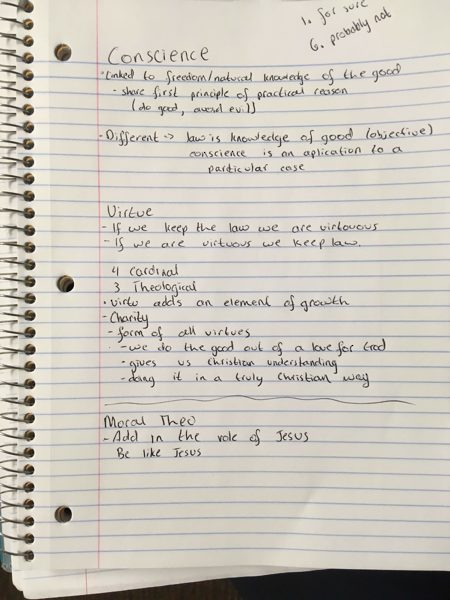 1. for sure
6. probably not
Conscience
• Linked to freedom/natural knowledge of the good
- share first principle of practical reason
(do good, avoid evil)
- Different -> law is knowledge of good (objective)
conscience is an aplication to a
particular case
Virtue
- If we keep the law we are virtouous
- If we are virtuous we keep law.
4 Cardinal
3 Theological
• Virtu adds an element of growth
- Charity
- form of all virtues
- we do the good out of a love for God
- gives us Christian understanding
- doing it in a truly Christian way
Moral Theo
- Add in the role of Jesus
Be like Jesus